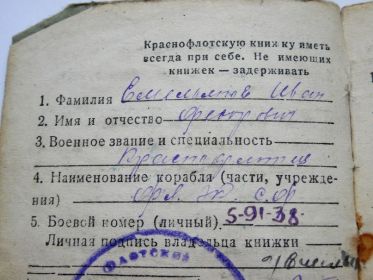 Краснофлотскую книжку иметь
всегда при себе. Не имеющих
книжек — задерживать
1. Фамилия Емельянов Иван
2. Имя и отчество Федорович
3. Военное звание и специальность
Краснофлотец
4. Наименование корабля (части, учрежде-
ния)
5. Боевой номер (личный). 5-91-38
Личная подпись владельца книжки
ФЛОТСКИЙ